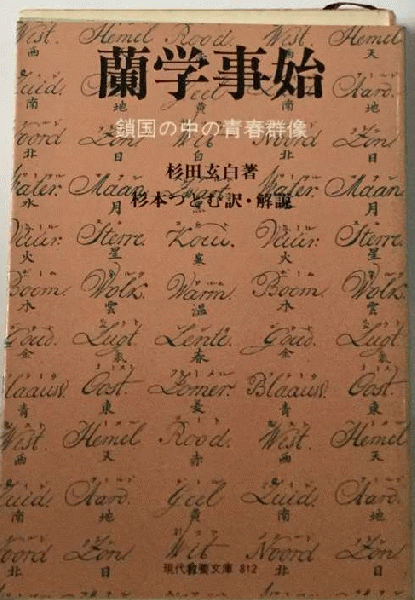 West. Hemel Rood. West. Hemel
西 天 西 天
蘭学事始
南 地 黄 南 地
鎖国の中の青春群像
Noord Zon Wit Noord Zon
北 日 北 日
杉田玄白著
Water. Maan. Water. Maan.
水 月 水 月
杉本つとむ訳・解説
Vuur. Sterre. Vuur. Sterre.
火 星 火 星
Boom Wolk. Warm Boom Wolk.
木 雲 温 木 雲
Goud. Lugt Lente. Goud. Lugt
金 氣 春 金 氣
Blaauw. Oost. Zomer. Blaauw. Oost.
青 東 夏 青 東
West. Hemel Rood. West. Hemel
西 天 赤 西 天
Zuid. Aard. Geel Zuid. Aard.
南 地 黄 南 地
Noord Zon Wit Noord Zon
北 日 北 日
現代教養文庫 812